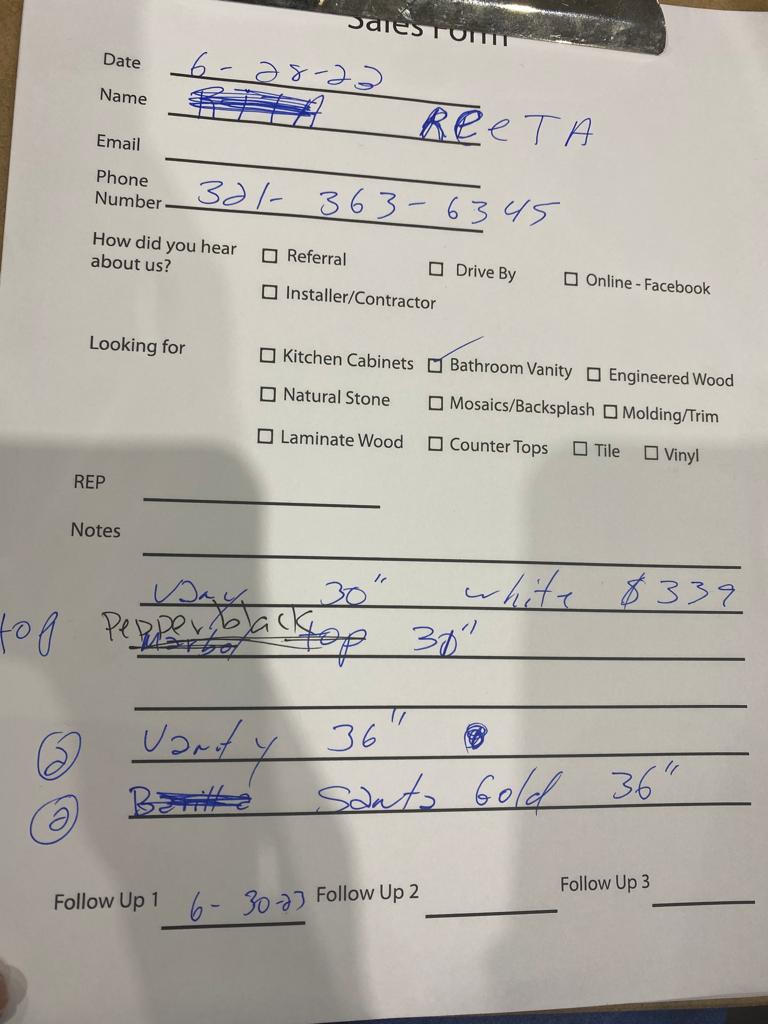 Sales Form
Date 6-28-22
Name REETA
Email
Phone Number 321-363-6345
How did you hear about us? ☐ Referral ☐ Drive By ☐ Online - Facebook
☐ Installer/Contractor
Looking for ☐ Kitchen Cabinets ☑ Bathroom Vanity ☐ Engineered Wood
☐ Natural Stone ☐ Mosaics/Backsplash ☐ Molding/Trim
☐ Laminate Wood ☐ Counter Tops ☐ Tile ☐ Vinyl
REP
Notes
30" white $339
top Pepper black top 30"
② Vanity 36"
② Santa Gold 36"
Follow Up 1 6-30-23 Follow Up 2 Follow Up 3